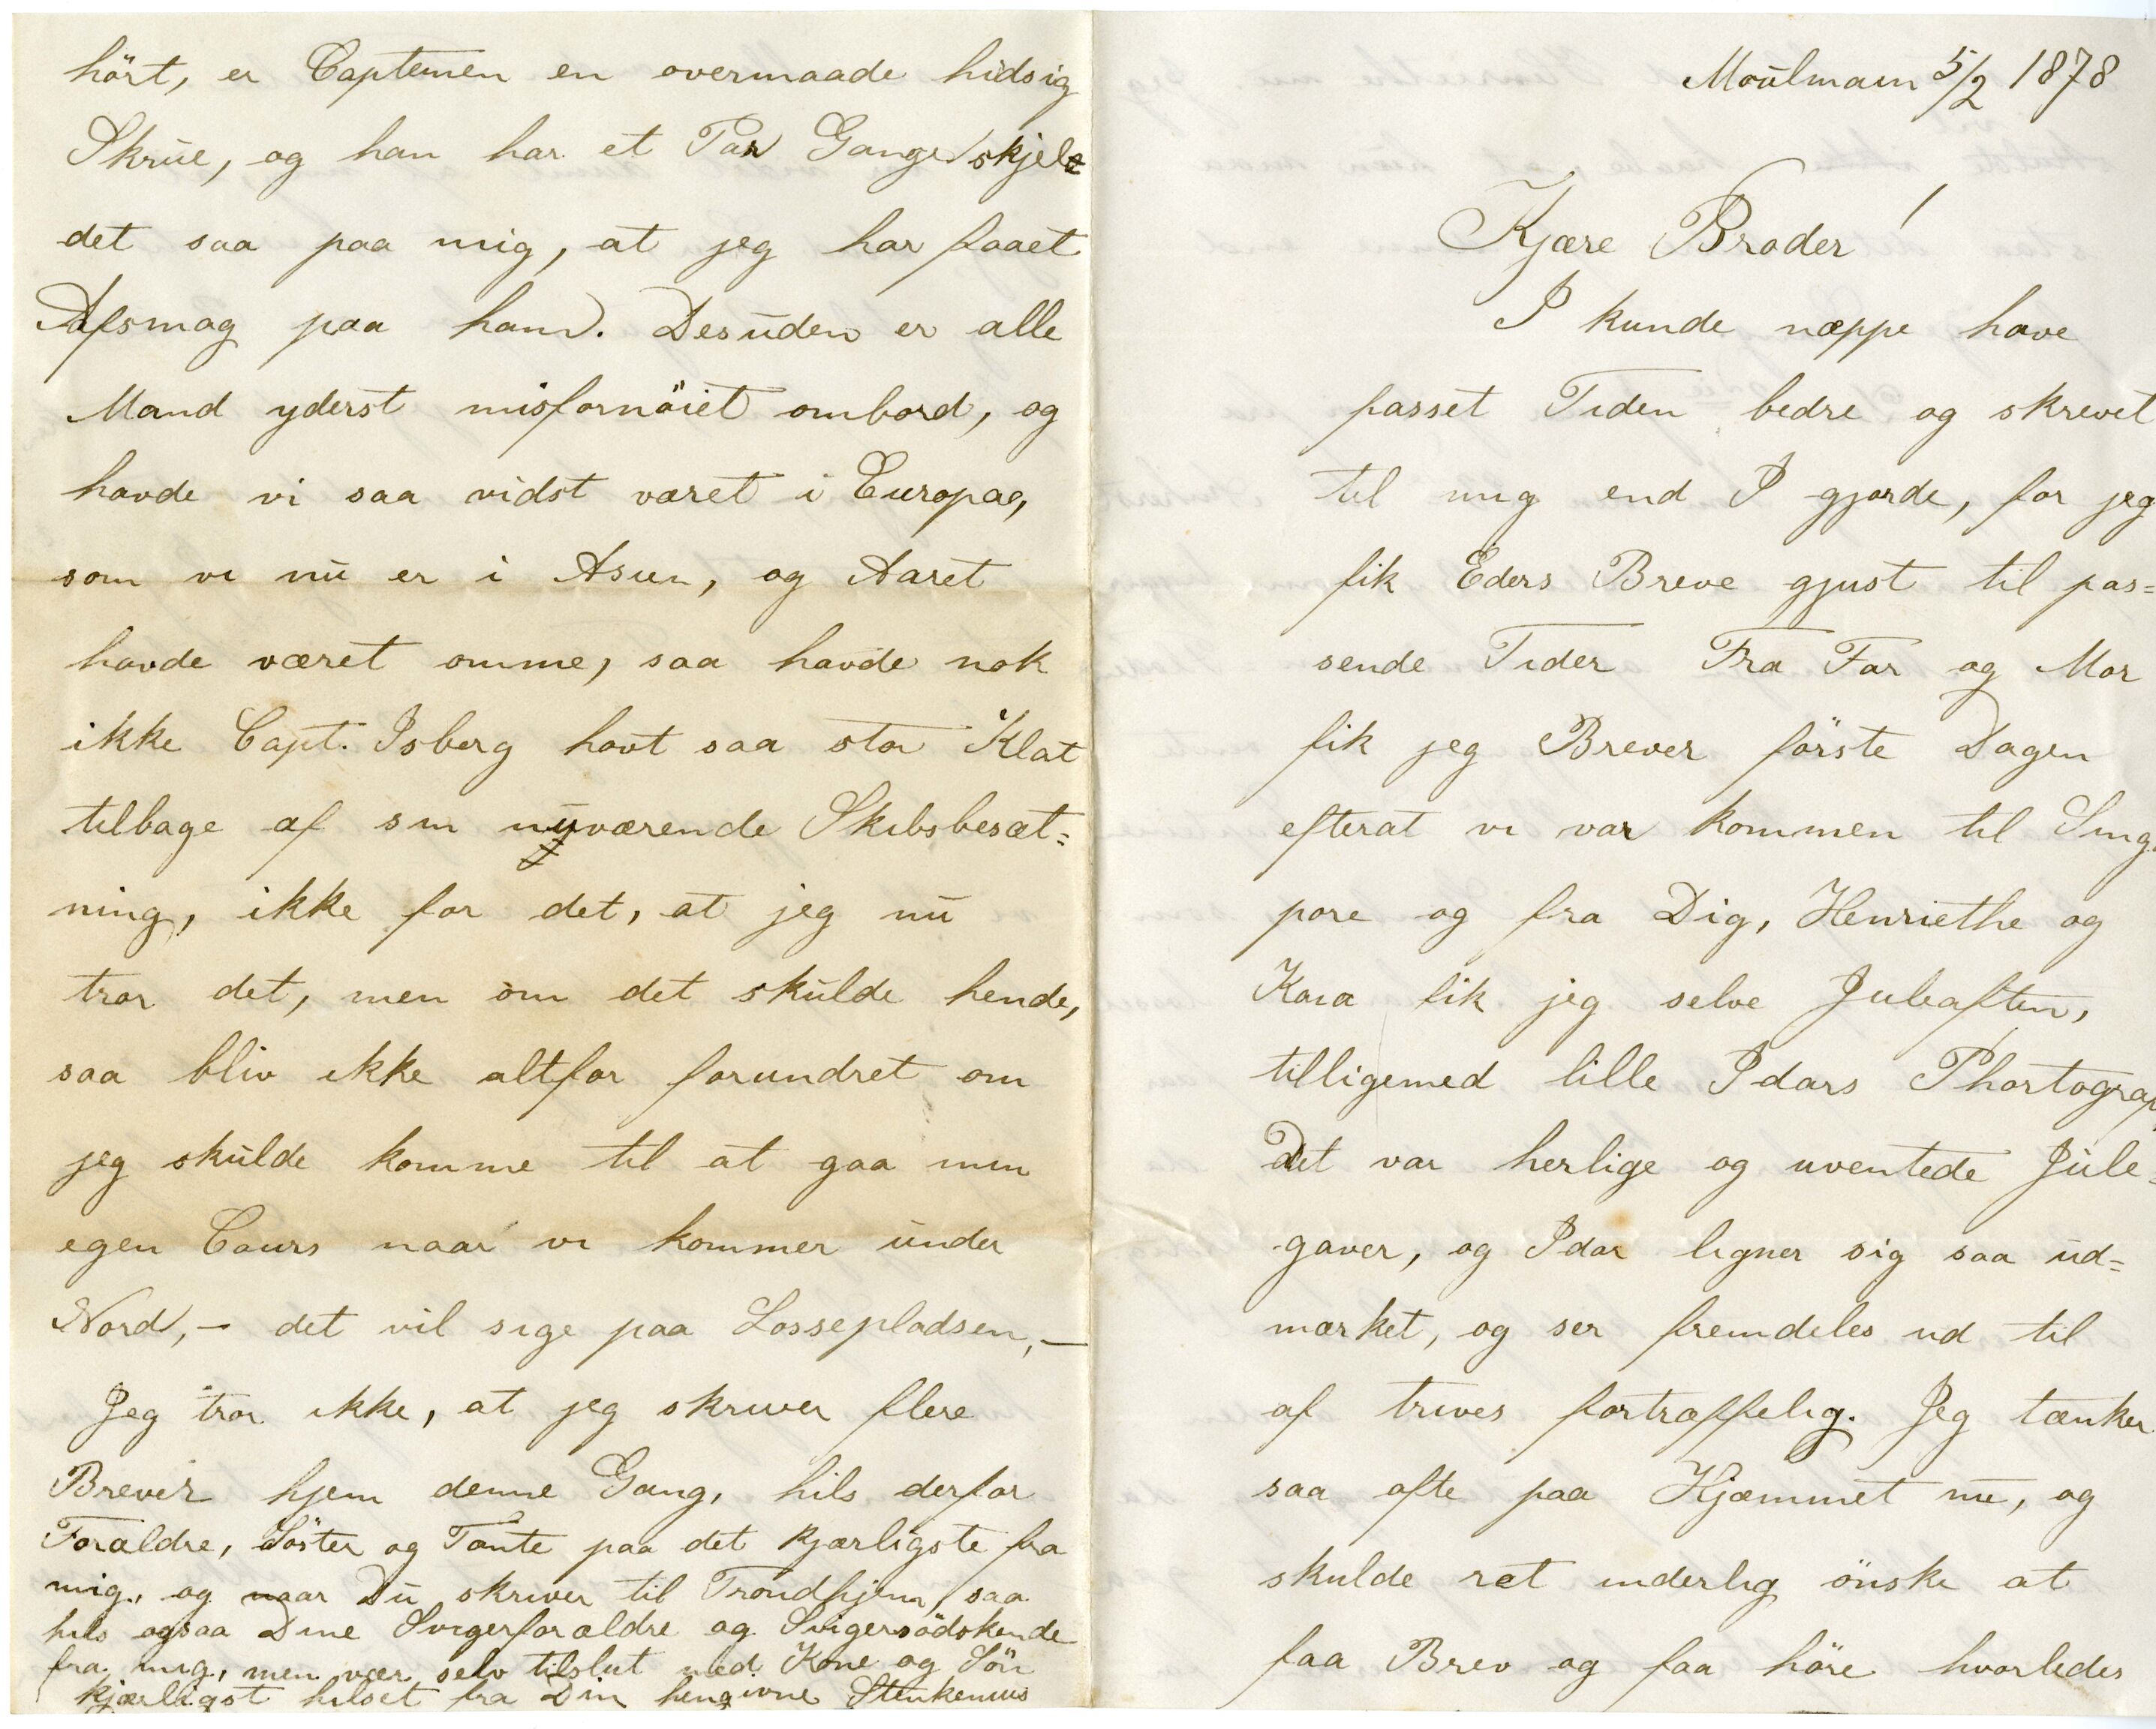 Moülmain 5/2 1878
Kjære Broder!
I kunde næppe have
passet Tiden bedre og skrevet
til mig end I gjorde, for jeg
fik Eders Breve gjust til pas=
sende Tider Fra Far og Mor
fik jeg Brever förste Dagen
efterat vi var kommen til Sing
pore og fra Dig, Henriethe og
Kaia fik jeg selve Juleaften,
tilligemed lille Idars Phortograp
Det var herlige og uventede Jüle=
gaver, og Idar ligner sig saa üd=
mærket, og ser fremdeles ud til
af trives fortræffelig. Jeg tænker
saa ofte paa Hjæmmet nü, og
skulde ret inderlig önske at
faa Brev og faa höre hvorledes
hört, er Capteinen en overmaade hidsig
Skrüe, og han har et Par Gange skjelt
det saa paa mig, at jeg har faaet
Afsmag paa ham. Desüden er alle
Mand yderst misfornöiet ombord, og
havde vi saa vidst været i Europa,
som vi nü er i Asien, og Aaret
havde været omme, saa havde nok
ikke Capt. Isberg havt saa stor Klat
tilbage af sin nüværende Skibsbesæt=
ning, ikke for det, at jeg nü
tror det, men om det skülde hende,
saa bliv ikke altfor forundret om
jeg skülde komme til at gaa min
egen Cours naar vi kommer ünder
Nord, — det vil sige paa Lossepladsen, —
Jeg tror ikke, at jeg skriver flere
Brever hjem denne Gang, hils derfor
Forældre, Söster og Tante paa det kjærligste fra
mig, og naar Dü skriver til Trondhjem, saa
hils ogsaa Dine Svigerforældre og Svigersödskende
fra mig, men vær selv tilslut med Kone og Sön
kjærligst hilset fra Din hengivne Stenkenius